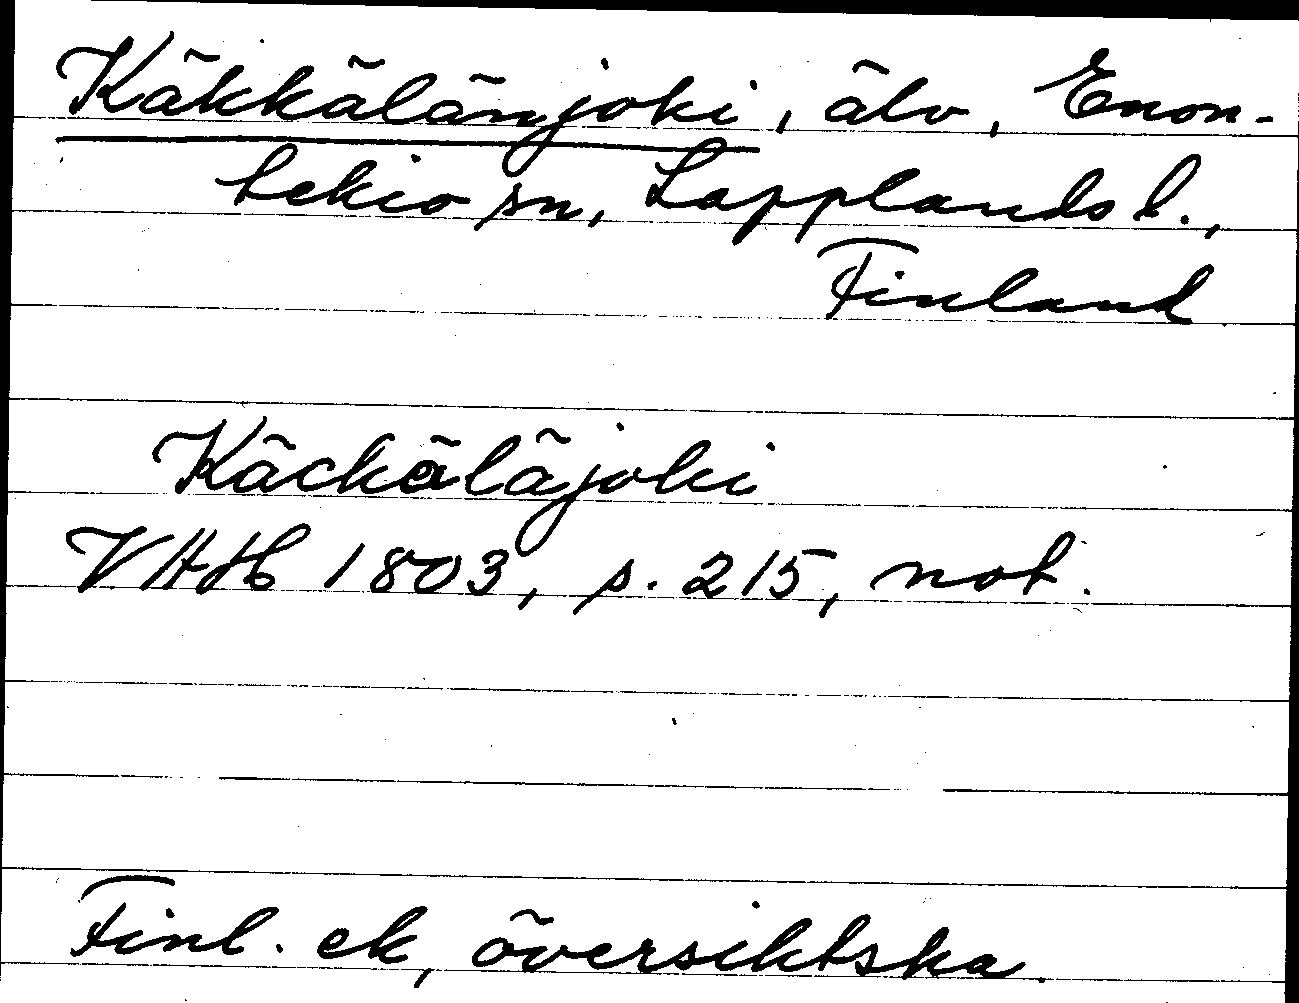 Käkkälänjoki, älv, Enon-
tekiö sn, Lapplands l.,
Finland
Käckäläjoki
VAH 1803, p. 215, not.
Finl. ek, översiktska.